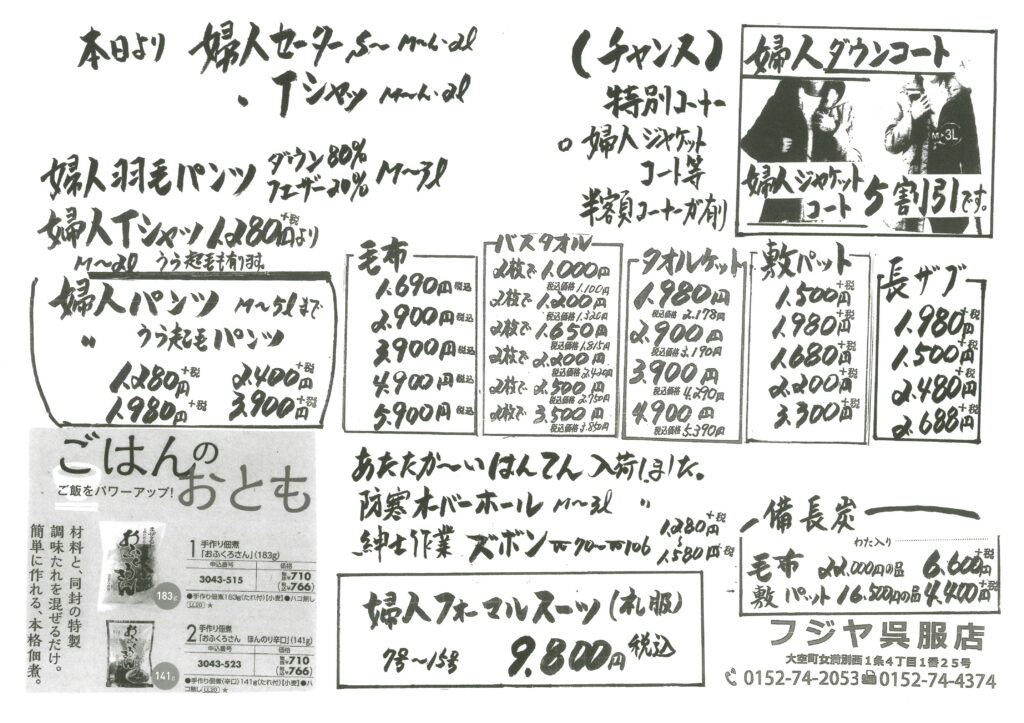 本日より 婦人セーター S〜 M〜L・2l
〃 Tシャツ M〜L・2l
婦人羽毛パンツ ダウン80% フェザー20% M〜3l
婦人Tシャツ 1,280円+税より
M〜2l うら起毛も有ります。
婦人パンツ M〜5lまで
〃 うら起毛パンツ
1,280円+税 2,400円+税
1,980円+税 3,900円+税
(チャンス)
特別コーナー
○婦人ジャケット
コート等
半額コーナーが有り
婦人ダウンコート
M▸3L
婦人ジャケット
コート 5割引です。
毛布
1,690円税込
2,900円税込
3,900円税込
4,900円税込
5,900円税込
バスタオル
2枚で 1,000円
税込価格 1,100円
2枚で 1,200円
税込価格 1,320円
2枚で 1,650円
税込価格 1,815円
2枚で 2,200円
税込価格 2,420円
2枚で 2,500円
税込価格 2,750円
2枚で 3,500円
税込価格 3,850円
タオルケット
1,980円
税込価格 2,178円
2,900円
税込価格 3,190円
3,900円
税込価格 4,290円
4,900円
税込価格 5,390円
敷パット
1,500円+税
1,980円+税
1,680円+税
2,200円+税
3,300円+税
長ザブ
1,980円+税
1,500円+税
2,480円+税
2,688円+税
ごはんの
おとも
ご飯をパワーアップ!
材料と、同封の特製
調味たれを混ぜるだけ。
簡単に作れる、本格佃煮。
おふくろさん
183g
1 手作り佃煮
「おふくろさん」(183g)
申込番号 価格
3043-515 税抜¥710
(税込¥766)
●手作り佃煮183g(たれ付)【小麦】●ハコ無し
LL20 ★
おふくろさん
141g
2 手作り佃煮
「おふくろさん ほんのり辛口」(141g)
申込番号 価格
3043-523 税抜¥710
(税込¥766)
●手作り佃煮(辛口)141g(たれ付)【小麦】●ハ
コ無し LL20 ★
あたたか〜いはんてん 入荷しました。
防寒オーバーホール M〜3l 〃
紳士作業ズボン W70〜W106 1,280円+税
〜1,580円+税
婦人フォーマルスーツ(礼服)
7号〜15号 9,800円 税込
備長炭
わた入り
毛布 22,000円の品 6,600円+税
敷パット 16,500円の品 4,400円+税
フジヤ呉服店
大空町女満別西1条4丁目1番25号
0152-74-2053 0152-74-4374